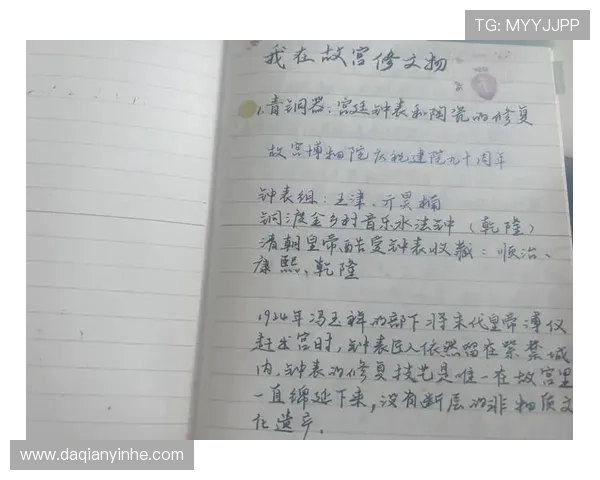 TG: MYYJJPP
我在故宫修文物
1.青铜器、宫廷钟表和陶瓷的修复
故宫博物院庆祝建院九十周年
钟表组：王津、亓昊楠
铜渡金乡村音乐水法钟（乾隆）
清朝皇帝酷爱钟表收藏：顺治、
康熙、乾隆
1924年冯玉祥的部下将末代皇帝溥仪
赶出宫时，钟表匠人依然留在紫禁城
内，钟表的修复技艺是唯一在故宫里
一直绵延下来，没有断层的非物质文
化遗产.
www.daqianyinhe.com